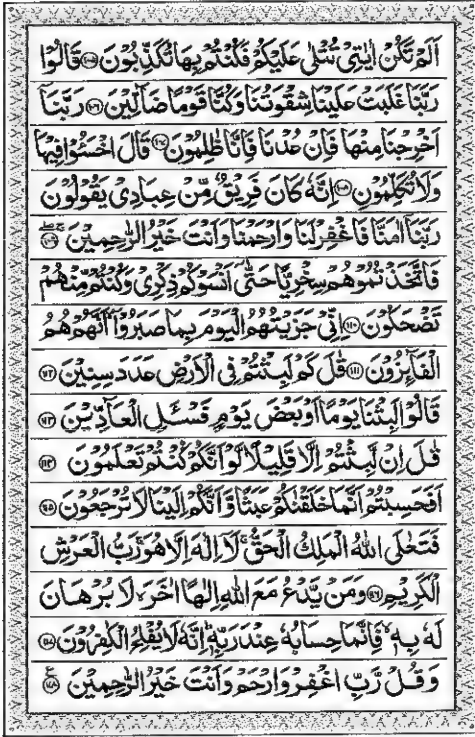 اَلَمْ تَكُنْ اٰیٰتِیْ تُتْلٰی عَلَیْكُمْ فَكُنْتُمْ بِهَا تُكَذِّبُوْنَ ﴿۱۰۵﴾ قَالُوْا
رَبَّنَا غَلَبَتْ عَلَیْنَا شِقْوَتُنَا وَكُنَّا قَوْمًا ضَآلِّیْنَ ﴿۱۰۶﴾ رَبَّنَاۤ
اَخْرِجْنَا مِنْهَا فَاِنْ عُدْنَا فَاِنَّا ظٰلِمُوْنَ ﴿۱۰۷﴾ قَالَ اخْسَئُوْا فِیْهَا
وَلَا تُكَلِّمُوْنِ ﴿۱۰۸﴾ اِنَّهٗ كَانَ فَرِیْقٌ مِّنْ عِبَادِیْ یَقُوْلُوْنَ
رَبَّنَاۤ اٰمَنَّا فَاغْفِرْلَنَا وَارْحَمْنَا وَاَنْتَ خَیْرُ الرّٰحِمِیْنَ ﴿۱۰۹﴾
فَاتَّخَذْتُمُوْهُمْ سِخْرِیًّا حَتّٰۤی اَنْسَوْكُمْ ذِكْرِیْ وَكُنْتُمْ مِّنْهُمْ
تَضْحَكُوْنَ ﴿۱۱۰﴾ اِنِّیْ جَزَیْتُهُمُ الْیَوْمَ بِمَا صَبَرُوْۤا اَنَّهُمْ هُمُ
الْفَآئِزُوْنَ ﴿۱۱۱﴾ قٰلَ كَمْ لَبِثْتُمْ فِی الْاَرْضِ عَدَدَ سِنِیْنَ ﴿۱۱۲﴾
قَالُوْا لَبِثْنَا یَوْمًا اَوْ بَعْضَ یَوْمٍ فَسْـَٔلِ الْعَآدِّیْنَ ﴿۱۱۳﴾
قٰلَ اِنْ لَّبِثْتُمْ اِلَّا قَلِیْلًا لَّوْ اَنَّكُمْ كُنْتُمْ تَعْلَمُوْنَ ﴿۱۱۴﴾
اَفَحَسِبْتُمْ اَنَّمَا خَلَقْنٰكُمْ عَبَثًا وَّاَنَّكُمْ اِلَیْنَا لَا تُرْجَعُوْنَ ﴿۱۱۵﴾
فَتَعٰلَی اللّٰهُ الْمَلِكُ الْحَقُّ ۚ لَاۤ اِلٰهَ اِلَّا هُوَ رَبُّ الْعَرْشِ
الْكَرِیْمِ ﴿۱۱۶﴾ وَمَنْ یَّدْعُ مَعَ اللّٰهِ اِلٰهًا اٰخَرَ ۙ لَا بُرْهَانَ
لَهٗ بِهٖ ۙ فَاِنَّمَا حِسَابُهٗ عِنْدَ رَبِّهٖ ؕ اِنَّهٗ لَا یُفْلِحُ الْكٰفِرُوْنَ ﴿۱۱۷﴾
وَقُلْ رَّبِّ اغْفِرْ وَارْحَمْ وَاَنْتَ خَیْرُ الرّٰحِمِیْنَ ﴿۱۱۸﴾ ع